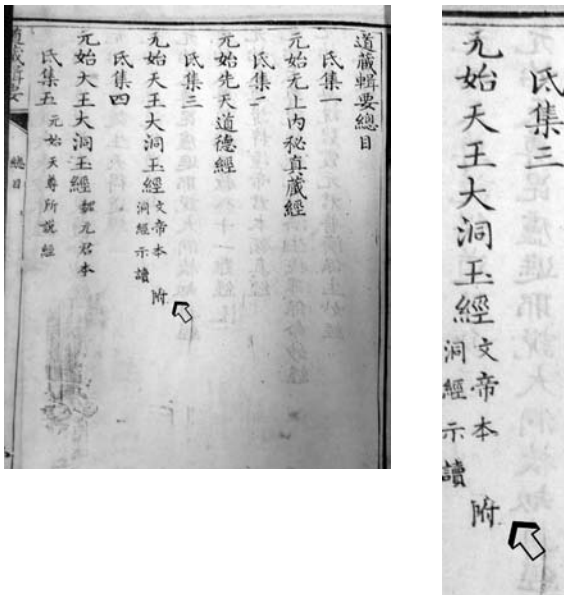 道藏輯要總目
氐集一
元始无上內秘真藏經
氐集二
元始先天道德經
氐集三
元始天王大洞玉經 文帝本 洞經示讀 附
氐集四
元始大王大洞玉經
氐集五 元始天尊所說經
道藏輯要 總目
氐集三
元始天王大洞玉經 文帝本 洞經示讀 附